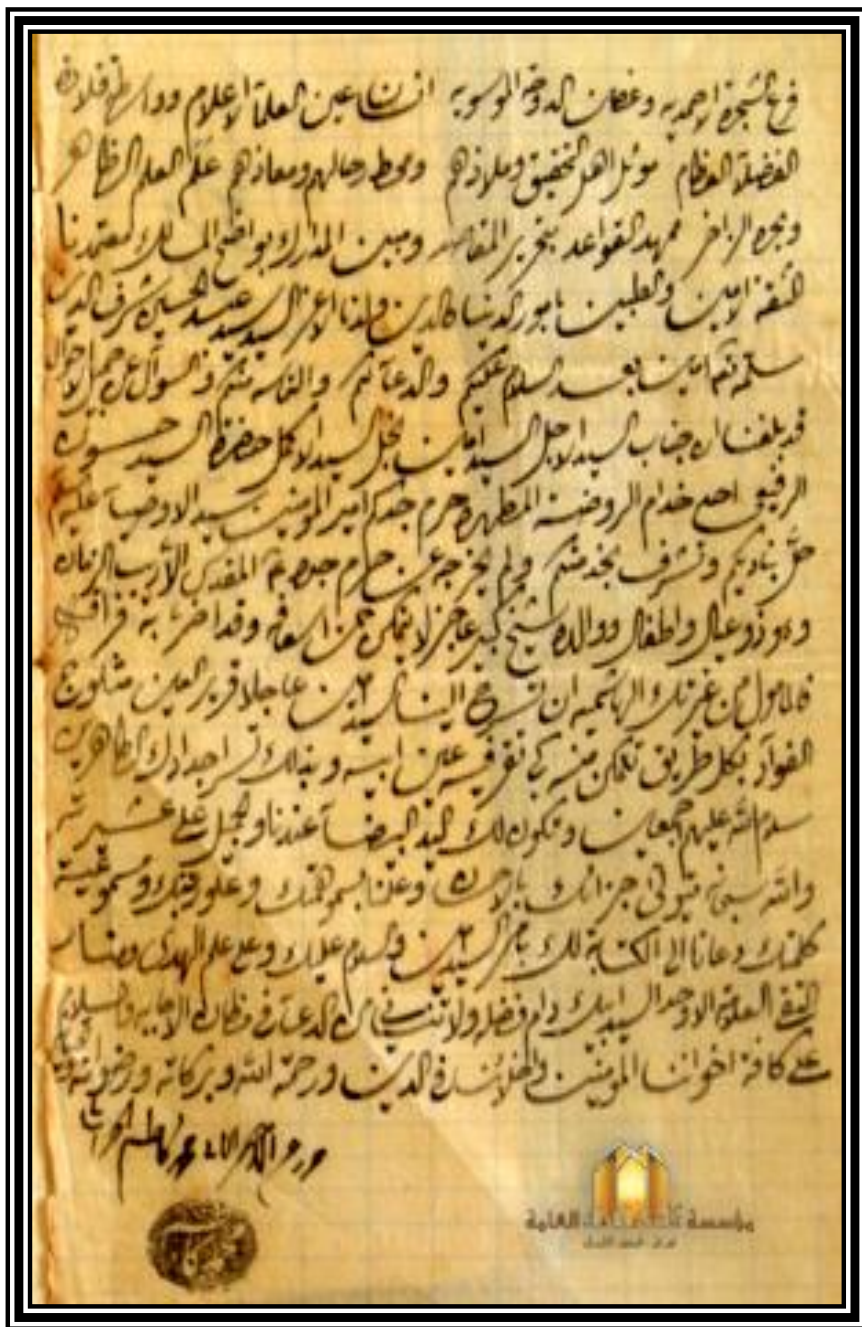 فرع الشجرة الاحمديه وغصن الدوحة الموسويه انسان عين العلماء الاعلام وواسطة قلادة
الفضلاء العظام موئل اهل التحقيق وملاذهم ومحط رحالهم ومعاذهم علم العلم الظاهر
وبحره الزاخر ممهد القواعد بتحرير المقاصد ومبين المدارك بواضح المسالك معتمدنا
الثقة الامين بامور الدنيا والدين ولدنا الاعز السيد عبد الحسين شرف الدين
سلمه الله امين بعد السلام عليكم والدعاء لكم والتماسه منكم والسؤال عن جميل الاحوال
قد بلغنا ان جناب السيد الاجل السيد امين نجل السيد الاكمل حضرة السيد حسون
الرفيعي احد خدام الروضة المطهره حرم جدكم امير المومنين وسيد الاوصياء عليه السلام
حل بناديكم وتشرف بخدمتكم ولم يخرجه عن حرم جده المقدس الا
وهو ذو عيال واطفال ووالده شيخ كبير عاجز لا يتمكن من اسعافه وقد اضر به فراقه
فالمامول من غيرتك الهاشميه ان تسرح الينا السيد امين عاجلا قرير العين مثلوج
الفوآد بكل طريق تتمكن منه كي تقر فيه عين ابيه وبذلك تسر اجدادك الطاهرين
سلام الله عليهم اجمعين وتكون لك اليد البيضاء عندنا والجميل على عشيرته
والله سبحانه يتولى جزائك بالاحسان وعلمنا بسمو همتك وعلو رتبتك ومسموعية
كلمتك دعانا الى الكتابة لك بامر السيد امين والسلام عليك وعلى علم الهدى ومنار
التقى العلامة الاوحد السيد ابيك دام فضله ولا تنسني من الدعاء في مظان الاجابه والسلام
على كافة اخواننا المومنين في الدين ورحمة الله وبركاته ورضوانه
محمد كاظم الخراساني
مؤسسة كاشف الغطاء العامة